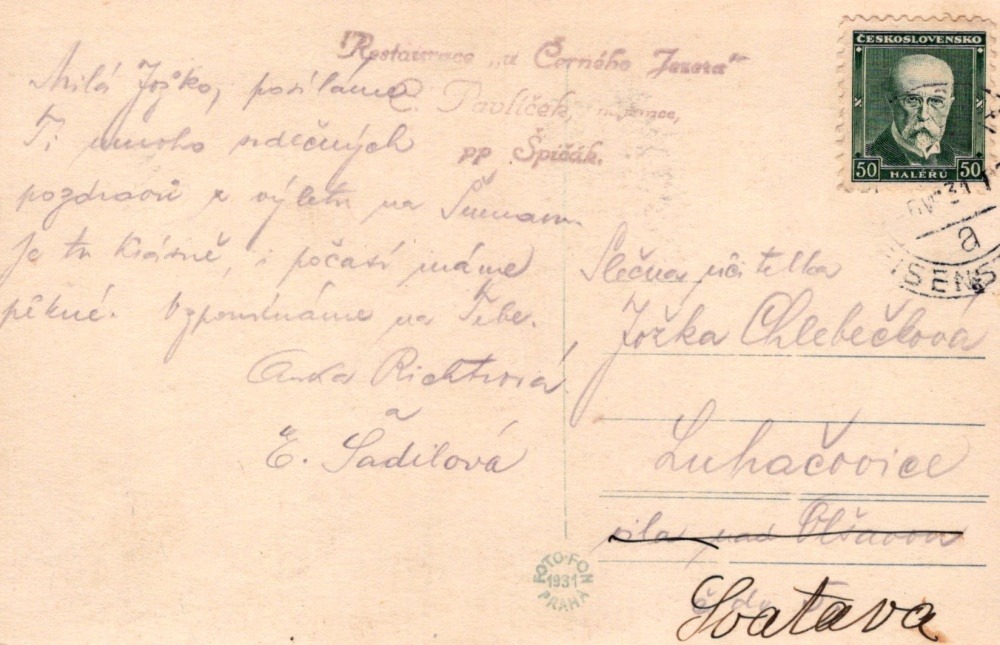 Restaurace „u Černého Jezera"
Pavlíček,
pp Špičák.
Milá Jožko, posíláme
Ti mnoho srdečných
pozdravů z výletu na Šumavu.
Je tu krásně, i počasí máme
pěkné. Vzpomínáme na Tebe.
Anka Richtrová
a
E. Šádilová
ČESKOSLOVENSKO
50 HALÉŘŮ 50
31
a
ISENS
Slečna učitelka
Jožka Chlebečková
Luhačovice
pila nad Olšavou
Svatava
FOTO-FON
1931
PRAHA